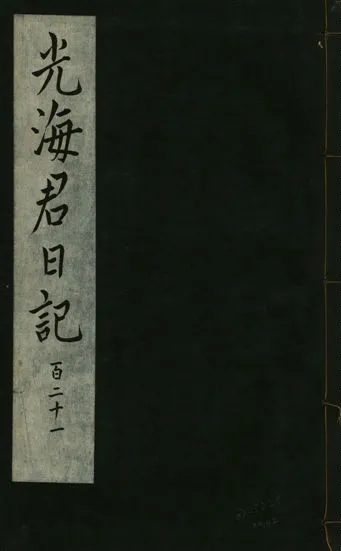 光海君日記
百二十一